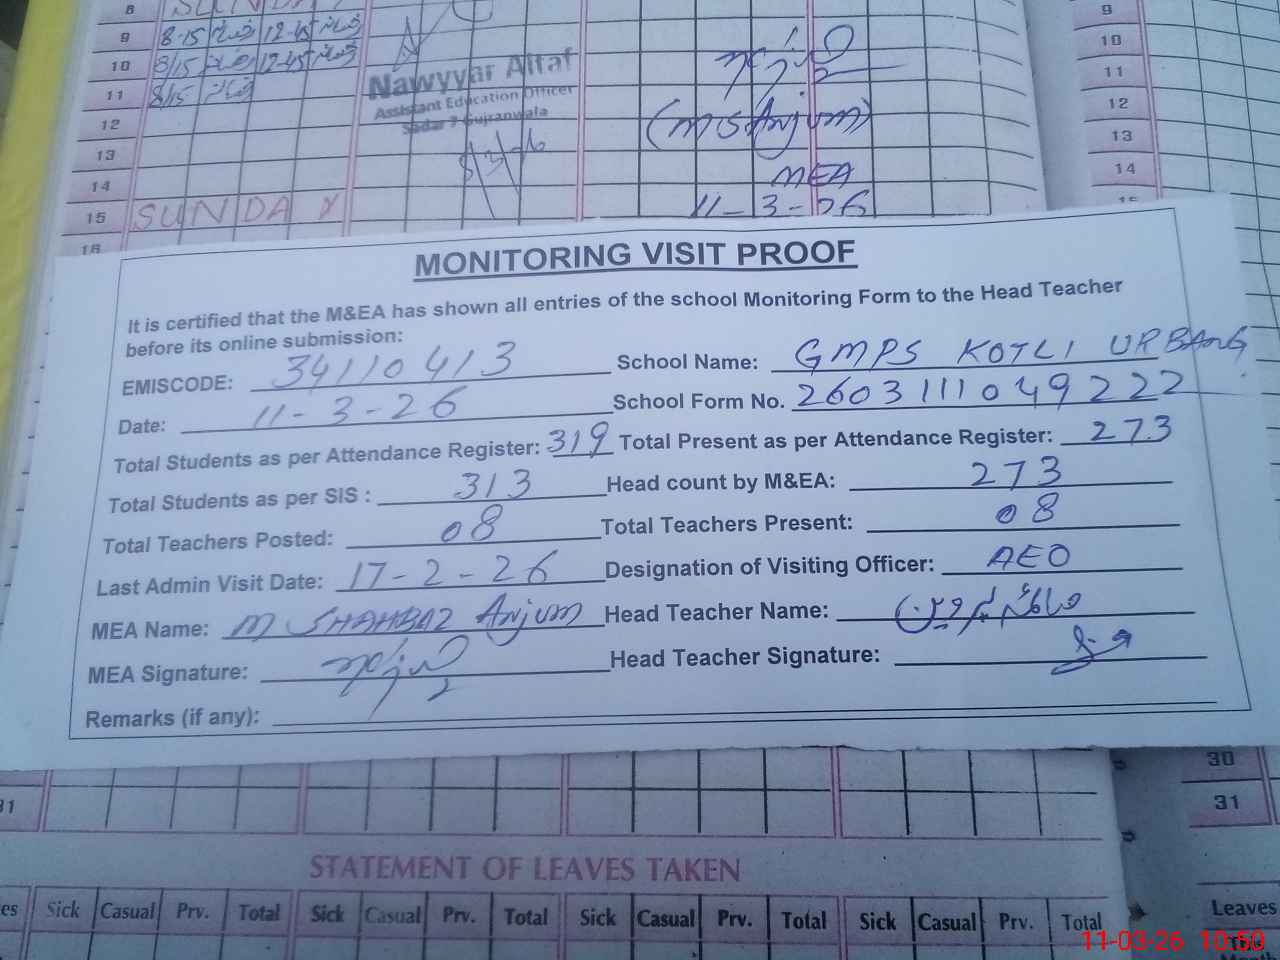 8 SUNDAY
9 8-15 12-45
10 8/15 12-45
11 8/15
12
13
14
15 SUNDAY
16
Nawyyar Altaf
Assistant Education Officer
Sadar 7 Gujranwala
(M S Anjum)
MEA
11-3-26
9
10
11
12
13
14
15
MONITORING VISIT PROOF
It is certified that the M&EA has shown all entries of the school Monitoring Form to the Head Teacher
before its online submission:
EMISCODE: 34110413 School Name: GMPS KOTLI URBANG
Date: 11-3-26 School Form No. 2603111049222
Total Students as per Attendance Register: 319 Total Present as per Attendance Register: 273
Total Students as per SIS : 313 Head count by M&EA: 273
Total Teachers Posted: 08 Total Teachers Present: 08
Last Admin Visit Date: 17-2-26 Designation of Visiting Officer: AEO
MEA Name: M SHAHBAZ Anjum Head Teacher Name:
MEA Signature: Head Teacher Signature:
Remarks (if any):
31
30
31
STATEMENT OF LEAVES TAKEN
es Sick Casual Prv. Total Sick Casual Prv. Total Sick Casual Prv. Total Sick Casual Prv. Total
Leaves
11-03-26 10:50